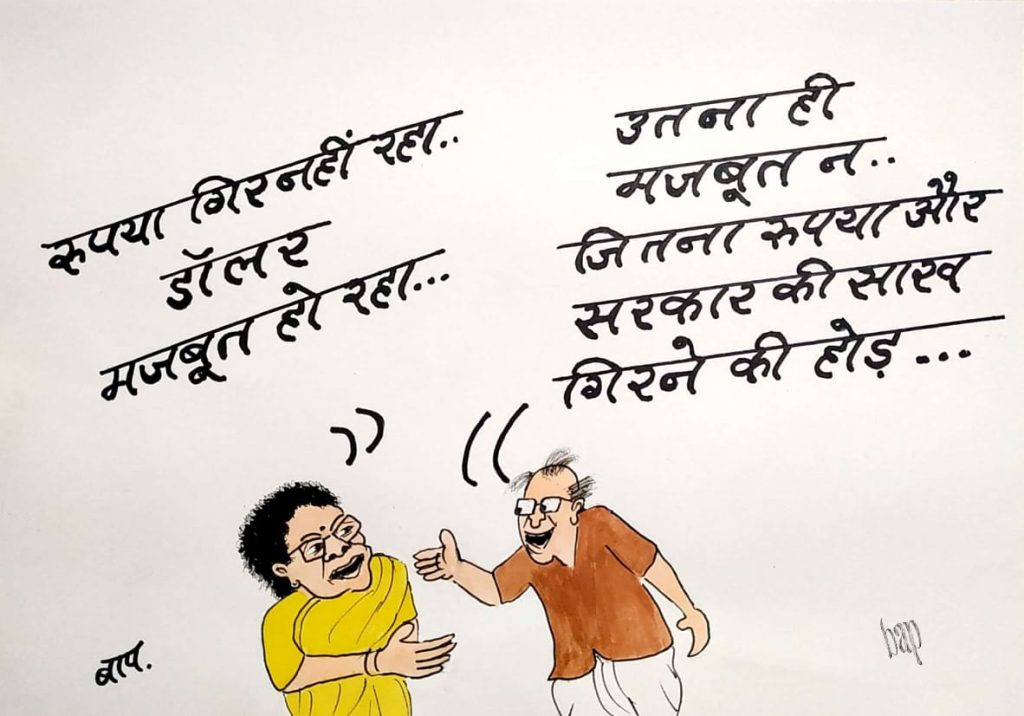 रुपया गिर नहीं रहा..
डॉलर
मजबूत हो रहा...
उतना ही
मजबूत न..
जितना रुपया और
सरकार की साख
गिरने की होड़...
बाप.
bap